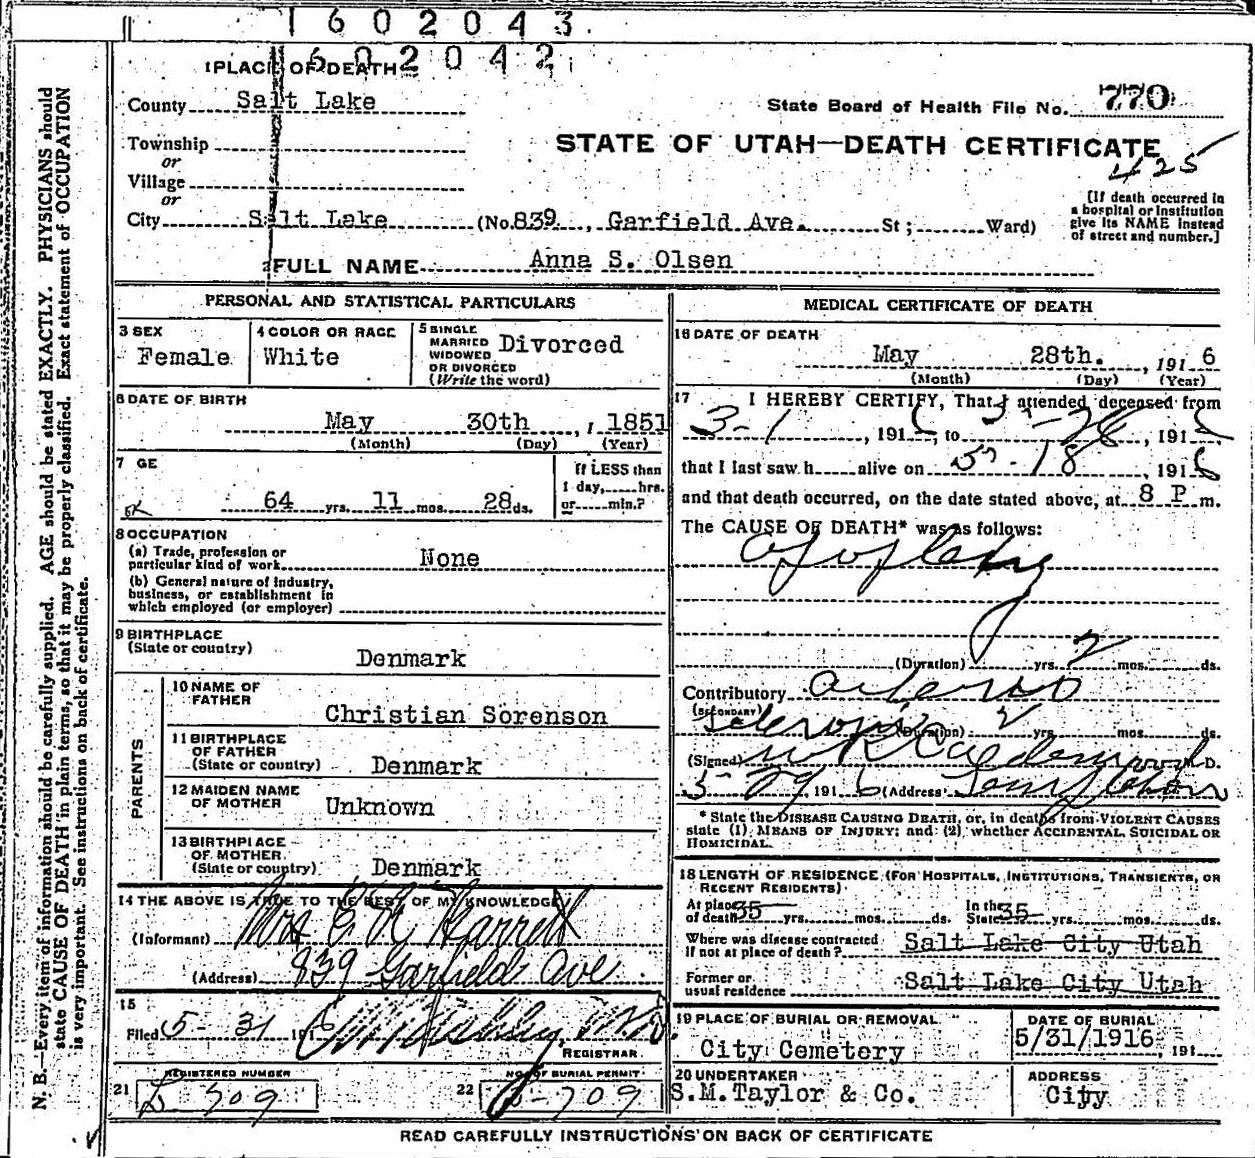 1602043
1602042
1 PLACE OF DEATH
County Salt Lake
State Board of Health File No. 770
Township
STATE OF UTAH—DEATH CERTIFICATE
425
or
Village
or
City Salt Lake (No. 839, Garfield Ave. St; Ward)
[If death occurred in
a hospital or institution
give its NAME instead
of street and number.]
2 FULL NAME Anna S. Olsen
PERSONAL AND STATISTICAL PARTICULARS
3 SEX
Female
4 COLOR OR RACE
White
5 SINGLE
MARRIED
WIDOWED
OR DIVORCED
(Write the word)
Divorced
6 DATE OF BIRTH
May 30th, 1851
(Month) (Day) (Year)
7 GE
64 yrs. 11 mos. 28 ds.
If LESS than
1 day, hrs.
or min.?
8 OCCUPATION
(a) Trade, profession or
particular kind of work None
(b) General nature of industry,
business, or establishment in
which employed (or employer)
9 BIRTHPLACE
(State or country)
Denmark
PARENTS
10 NAME OF
FATHER
Christian Sorenson
11 BIRTHPLACE
OF FATHER
(State or country) Denmark
12 MAIDEN NAME
OF MOTHER Unknown
13 BIRTHPLACE
OF MOTHER
(State or country) Denmark
14 THE ABOVE IS TRUE TO THE BEST OF MY KNOWLEDGE
(Informant) Mrs
(Address) 839 Garfield Ave
15
Filed 5-31 191 M.D.
REGISTRAR
21 REGISTERED NUMBER
709
22 NO. OF BURIAL PERMIT
709
MEDICAL CERTIFICATE OF DEATH
16 DATE OF DEATH
May 28th., 1916
(Month) (Day) (Year)
17 I HEREBY CERTIFY, That I attended deceased from
3-1, 1916, to 5-28, 1916
that I last saw h alive on 5-18, 1916
and that death occurred, on the date stated above, at 8 P m.
The CAUSE OF DEATH* was as follows:
Apoplexy
(Duration) yrs. 2 mos. ds.
Contributory Arterio
(SECONDARY)
Sclerosis (Duration) 2 yrs. mos. ds.
(Signed) D.
5-29 1916 (Address)
* State the DISEASE CAUSING DEATH, or, in deaths from VIOLENT CAUSES
state (1) MEANS OF INJURY; and (2) whether ACCIDENTAL, SUICIDAL OR
HOMICIDAL.
18 LENGTH OF RESIDENCE (FOR HOSPITALS, INSTITUTIONS, TRANSIENTS, OR
RECENT RESIDENTS)
At place
of death 35 yrs. mos. ds.
In the
State 35 yrs. mos. ds.
Where was disease contracted
if not at place of death? Salt Lake City Utah
Former or
usual residence Salt Lake City Utah
19 PLACE OF BURIAL OR REMOVAL
City Cemetery
DATE OF BURIAL
5/31/1916, 191
20 UNDERTAKER
S.M. Taylor & Co.
ADDRESS
City
READ CAREFULLY INSTRUCTIONS ON BACK OF CERTIFICATE
N. B.—Every item of information should be carefully supplied. AGE should be stated EXACTLY. PHYSICIANS should
state CAUSE OF DEATH in plain terms, so that it may be properly classified. Exact statement of OCCUPATION
is very important. See instructions on back of certificate.